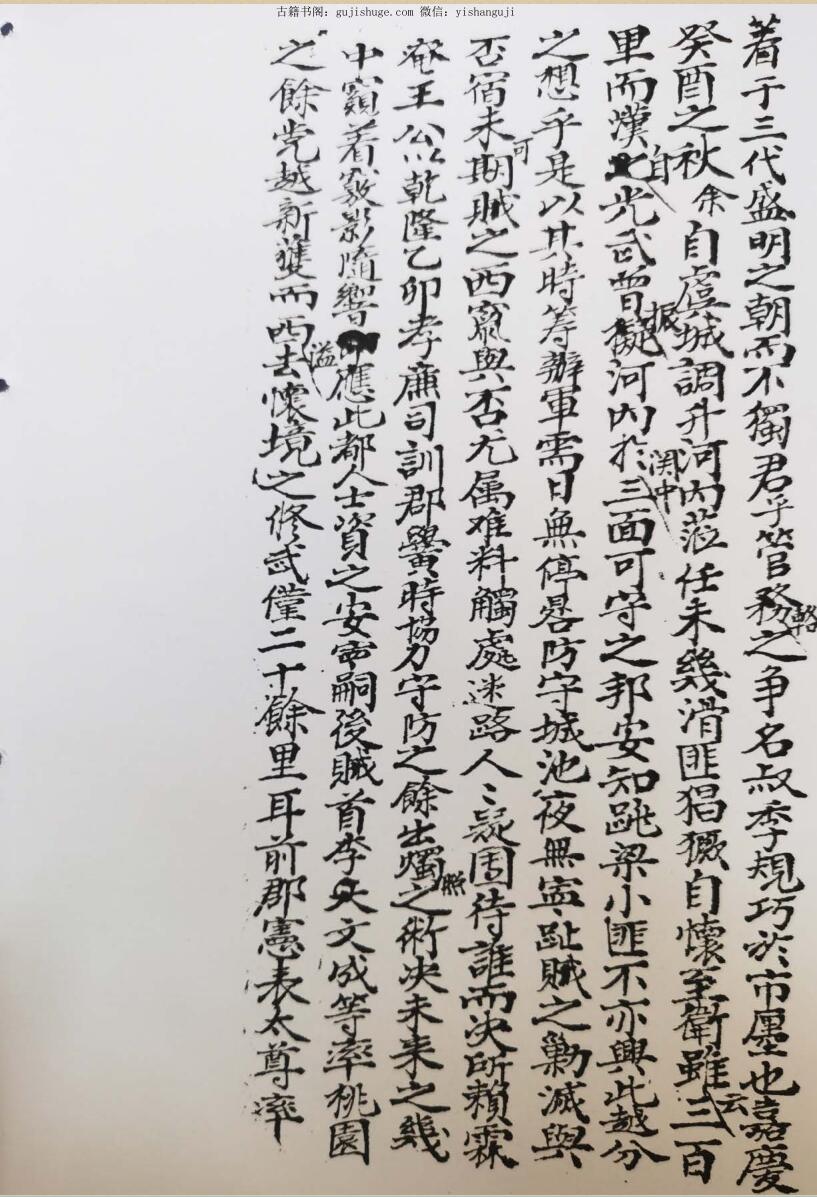 古籍书阁：gujishuge.com 微信：yishanguji
着于三代盛明之朝而不獨君乎管輅務之争名叔季規巧於市廛也嘉慶
癸酉之秋余自虞城調升河内蒞任未幾滑匪猖獗自懷至衛雖云三百
里而漢自光武曾振擬河内扵関中三面可守之邦安知跳梁小匪不亦興此越分
之想乎是以其時筹辦軍需日無停晷防守城池夜無寍趾賊之勦滅與
否宿未可期賊之西竄與否尤属难料觸處迷路人〻疑團待誰而决所賴霖
菴王公以乾隆乙卯孝廉司訓郡黌時協力守防之餘出燭照之術决未来之幾
中窺着竅影隨響應此都人士資之安寍嗣後賊首李文成等率桃園
之餘党越新獲而西去溢懷境之修武僅二十餘里耳前郡憲表太尊率